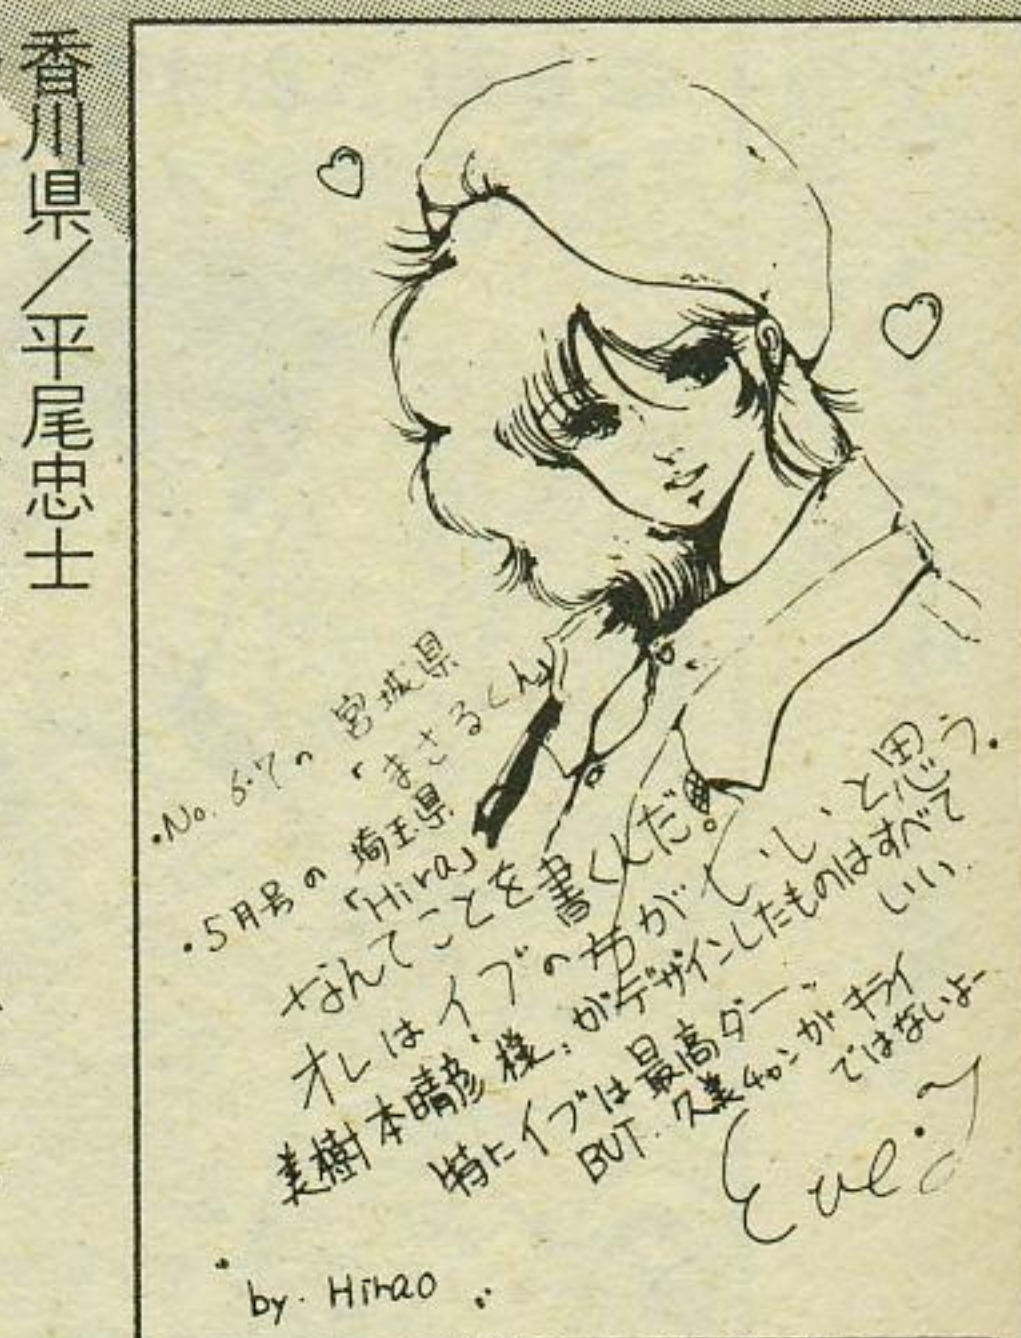 香川県／平尾忠士
・No. 6・7の 宮城県
「まさるくん」
・5月号の 埼玉県
「Hira」
なんてことを書くんだ!
オレはイブの方がいいと思う。
美樹本晴彦様がデザインしたものはすべて
いい.
特にイブは最高ダー
BUT. 久美チャンがキライ
ではないよー
Eve.
by. Hirao